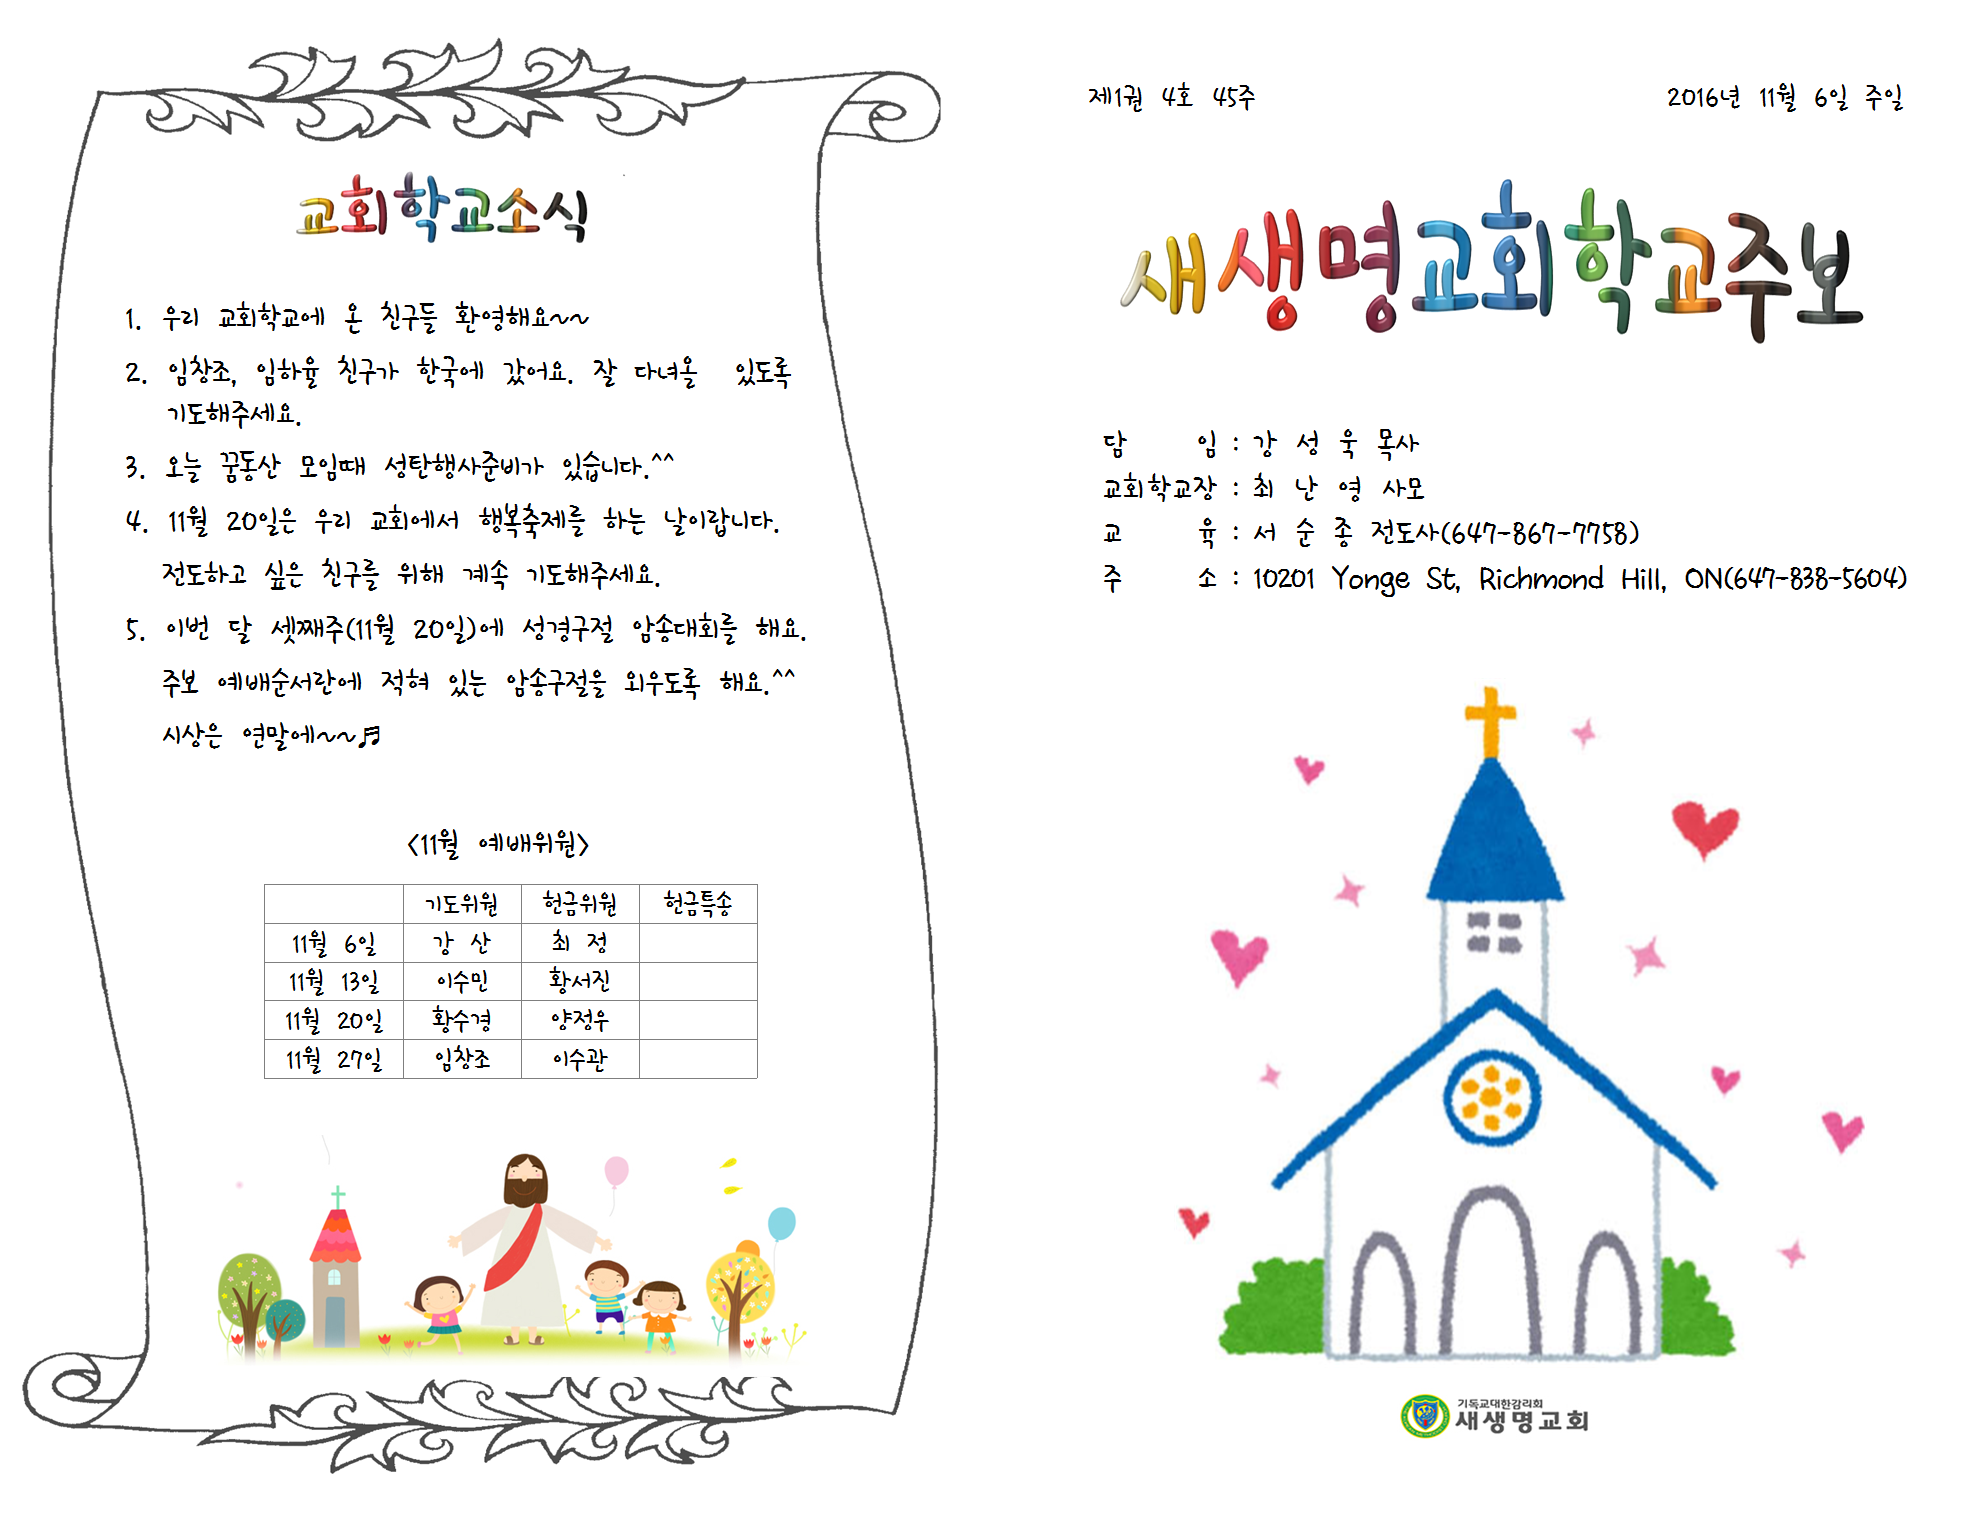 교회학교소식
1. 우리 교회학교에 온 친구들 환영해요~~
2. 임창조, 임하율 친구가 한국에 갔어요. 잘 다녀올 있도록
기도해주세요.
3. 오늘 꿈동산 모임때 성탄행사준비가 있습니다.^^
4. 11월 20일은 우리 교회에서 행복축제를 하는 날이랍니다.
전도하고 싶은 친구를 위해 계속 기도해주세요.
5. 이번 달 셋째주(11월 20일)에 성경구절 암송대회를 해요.
주보 예배순서란에 적혀 있는 암송구절을 외우도록 해요.^^
시상은 연말에~~♬
<11월 예배위원>
기도위원 헌금위원 헌금특송
11월 6일 강 산 최 정
11월 13일 이수민 황서진
11월 20일 황수경 양정우
11월 27일 임창조 이수관
제1권 4호 45주 2016년 11월 6일 주일
새생명교회학교주보
담 임 : 강 성 욱 목사
교회학교장 : 최 난 영 사모
교 육 : 서 순 종 전도사(647-867-7758)
주 소 : 10201 Yonge St, Richmond Hill, ON(647-838-5604)
기독교대한감리회
새생명교회